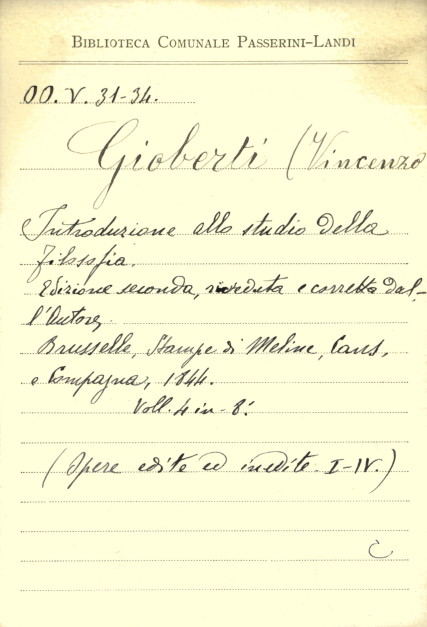 BIBLIOTECA COMUNALE PASSERINI-LANDI
OO. V. 31-34.
Gioberti (Vincenzo
Introduzione allo studio della
filosofia.
Edizione seconda, riveduta e corretta dal-
l'Autore,
Brusselle, Stampe di Meline, Cans,
e Compagna, 1844.
Voll. 4 in-8.°
(Opere edite ed inedite. I-IV.)
C